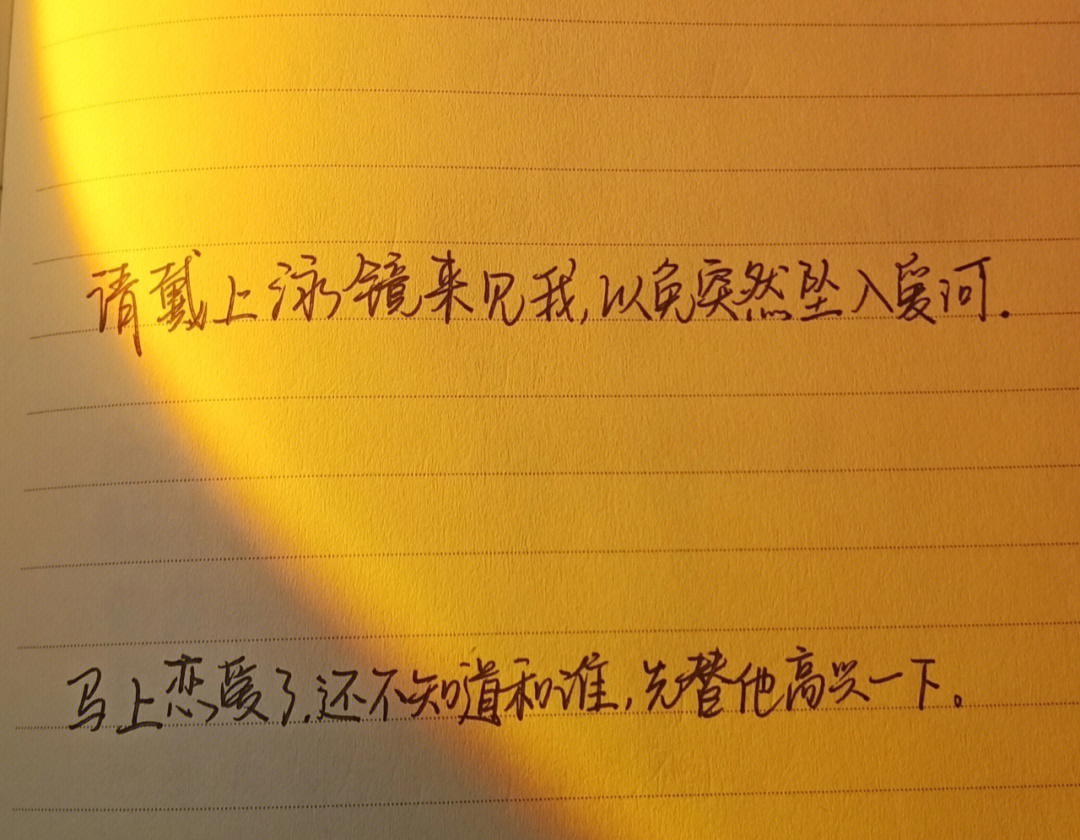 请戴上泳镜来见我,以免突然坠入爱河.
马上恋爱了,还不知道和谁,先替他高兴一下。